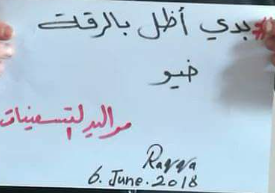 #بدي أظل بالرقة
خيو
مواليد التسعينات
Raqqa
6. June. 2018